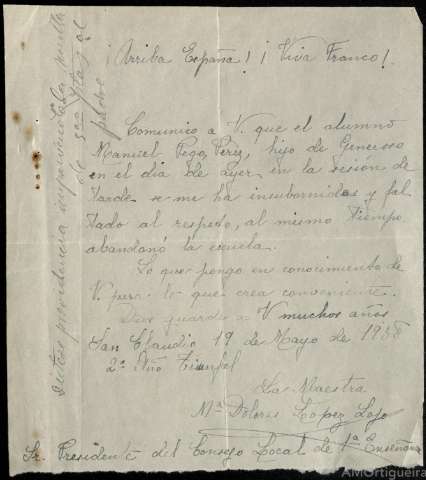 ¡Arriba España! ¡Viva Franco!
Comunico a V. que el alumno
Manuel Pego Pérez, hijo de Generoso
en el dia de ayer en la sesión de
tarde se me ha insubornidao y fal
tado al respeto, al mismo tiempo
abandonó la escuela.
Lo que pongo en conocimiento de
V. para lo que crea conveniente.
Dios guarde a V muchos años
San Claudio 19 de Mayo de 1938
2º Año Triunfal
La Maestra
Mª Dolores López Lojo
Sr. Presidente del Consejo Local de 1ª Enseñanza
providencia imponiendole multa
de pts al
padre
AMOrtigueira